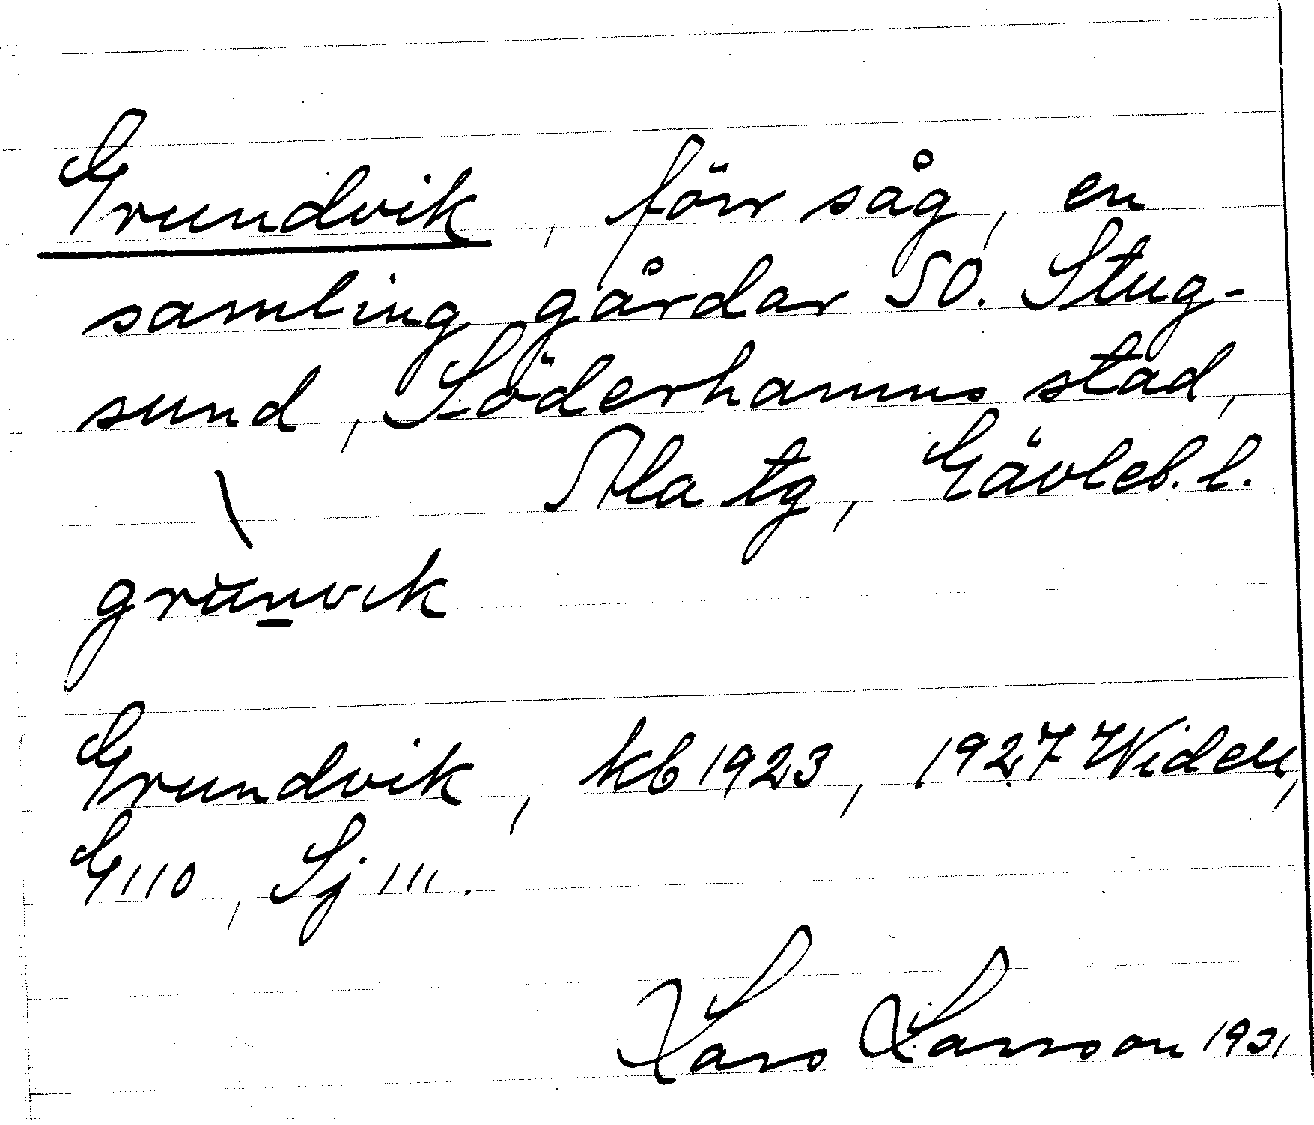 Grundvik, förr såg, en
samling gårdar SO. Stug-
sund, Söderhamns stad,
Ala tg, Gävleb. l.
grunvik
Grundvik, kb 1923, 1927 Widell,
G 110, Sj 111.
Lars Larsson 1931